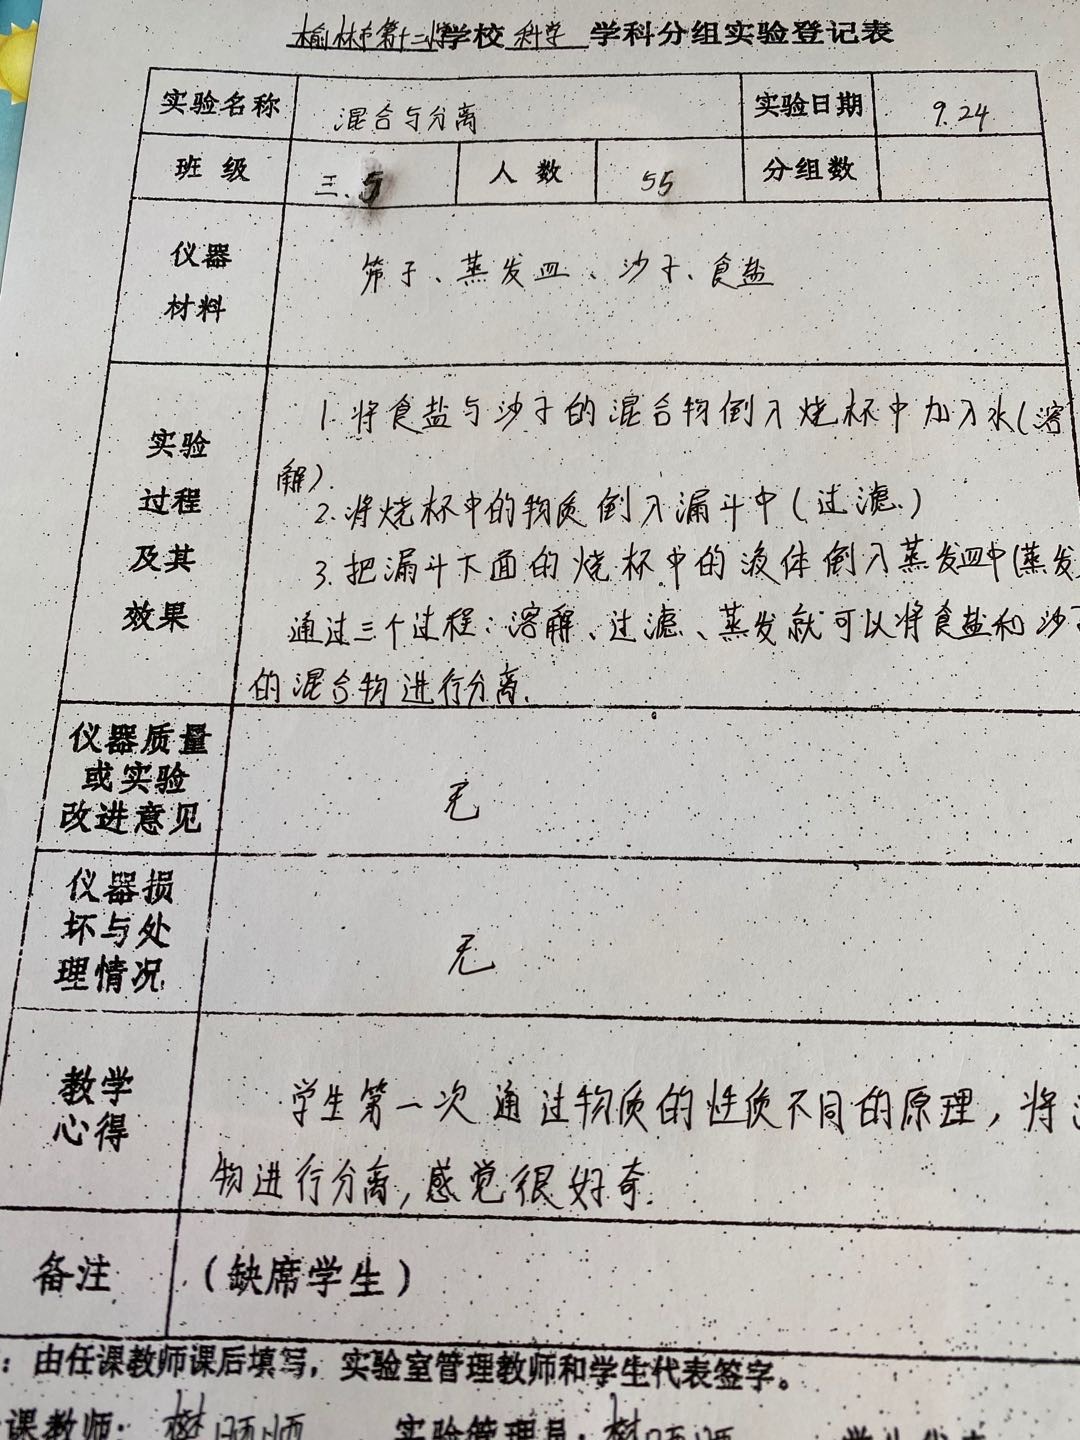 榆林市第十二小学校 科学 学科分组实验登记表
实验名称 混合与分离 实验日期 9.24
班级 三.5 人数 55 分组数
仪器
材料
筛子、蒸发皿、沙子、食盐
实验
过程
及其
效果
1.将食盐与沙子的混合物倒入烧杯中加入水(溶
解).
2.将烧杯中的物质倒入漏斗中(过滤.)
3.把漏斗下面的烧杯中的液体倒入蒸发皿中(蒸发)
通过三个过程:溶解、过滤、蒸发就可以将食盐和沙子
的混合物进行分离.
仪器质量
或实验
改进意见
无
仪器损
坏与处
理情况
无
教学
心得
学生第一次通过物质的性质不同的原理,将
物进行分离,感觉很好奇.
备注 (缺席学生)
:由任课教师课后填写,实验室管理教师和学生代表签字。
课教师: 实验管理员: